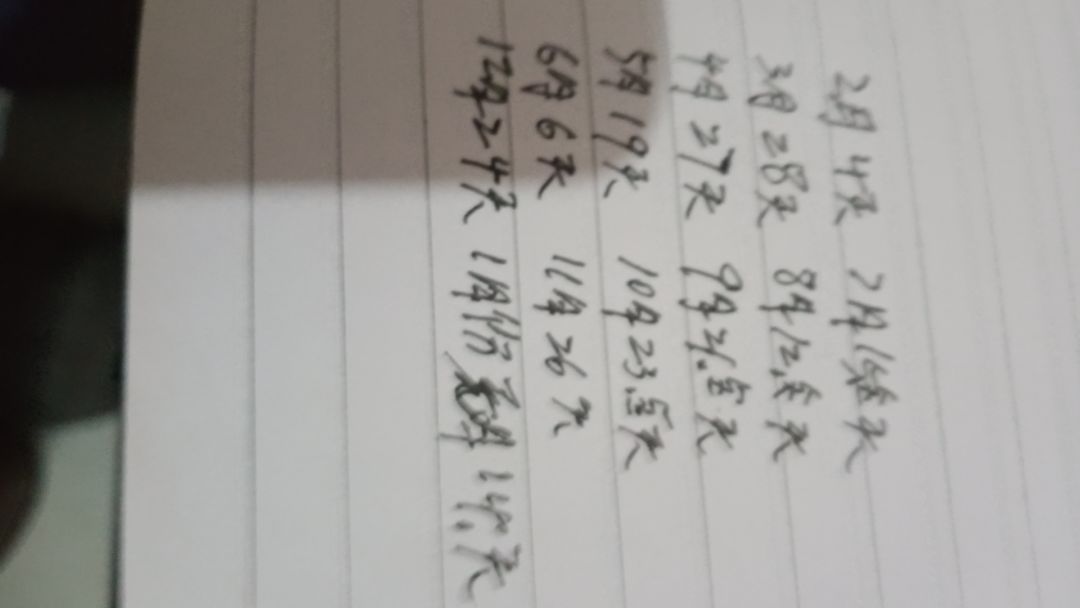 2月4天 7月16天
3月28天 8月12.5天
4月27天 9月21.5天
5月19天 10月23.5天
6月6天 11月26天
12月24天 1月份 14.天